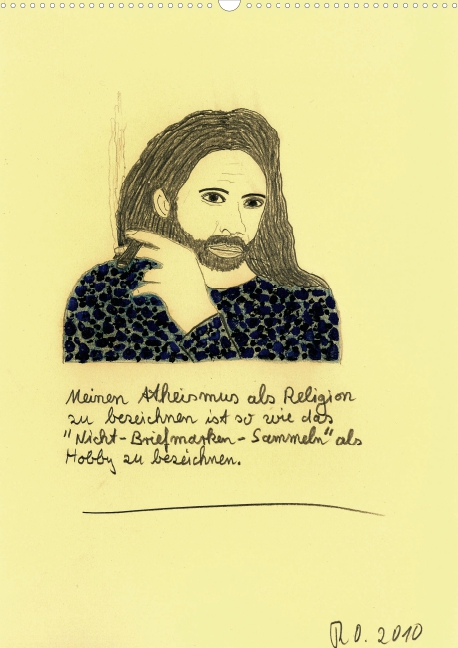 Meinen Atheismus als Religion
zu bezeichnen ist so wie das
"Nicht-Briefmarken-Sammeln" als
Hobby zu bezeichnen.
R.O. 2010